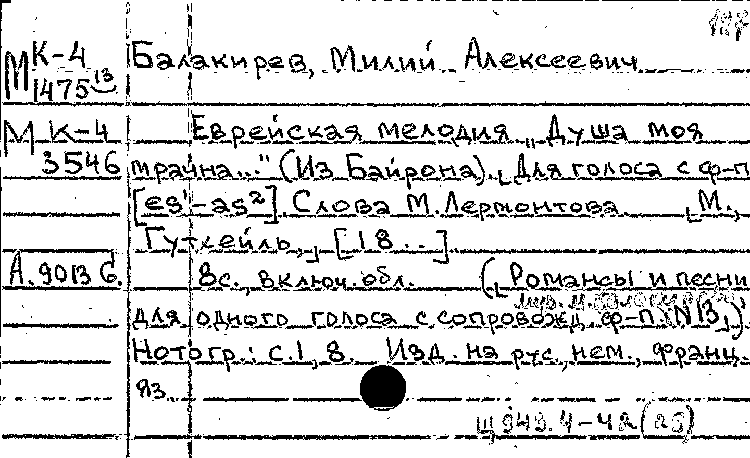 МК-4 Балакирев, Милий Алексеевич
1475 13
МК-4 Еврейская мелодия „Душа моя
3546 мрачна..." (Из Байрона). Для голоса с ф-п
[es¹-as²]. Слова М. Лермонтова. М.,
Гутхейль, [18..]
А.9013 б. 8с., включ. обл. (Романсы и песни
для одного голоса с сопровожд. ф-п. N13)
Нотогр.: с.1, 8. Изд. на рус., нем., франц.
яз.
Щ 949.4-42(25)